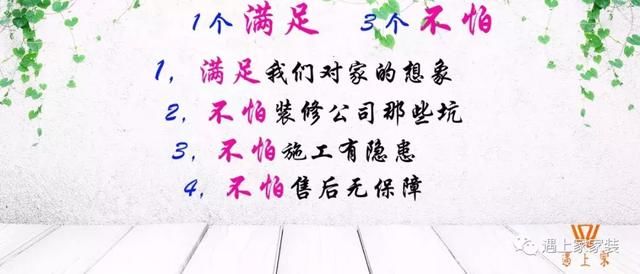 1个满足 3个不怕
1，满足我们对家的想象
2，不怕装修公司那些坑
3，不怕施工有隐患
4，不怕售后无保障
遇上家家装
遇上家